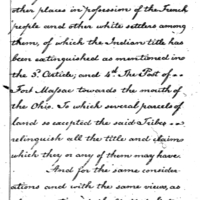 other places in possession of the French
people and other white settlers among
them, of which the Indian title has
been extinguished as mentioned in
the 3d. Article; and 4th. The Post of
Fort Massac towards the mouth of
the Ohio. To which several parcels of
land so excepted the said Tribes
relinquish all the title and claim
which they or any of them may have.
And for the same consider-
ations and with the same views, as